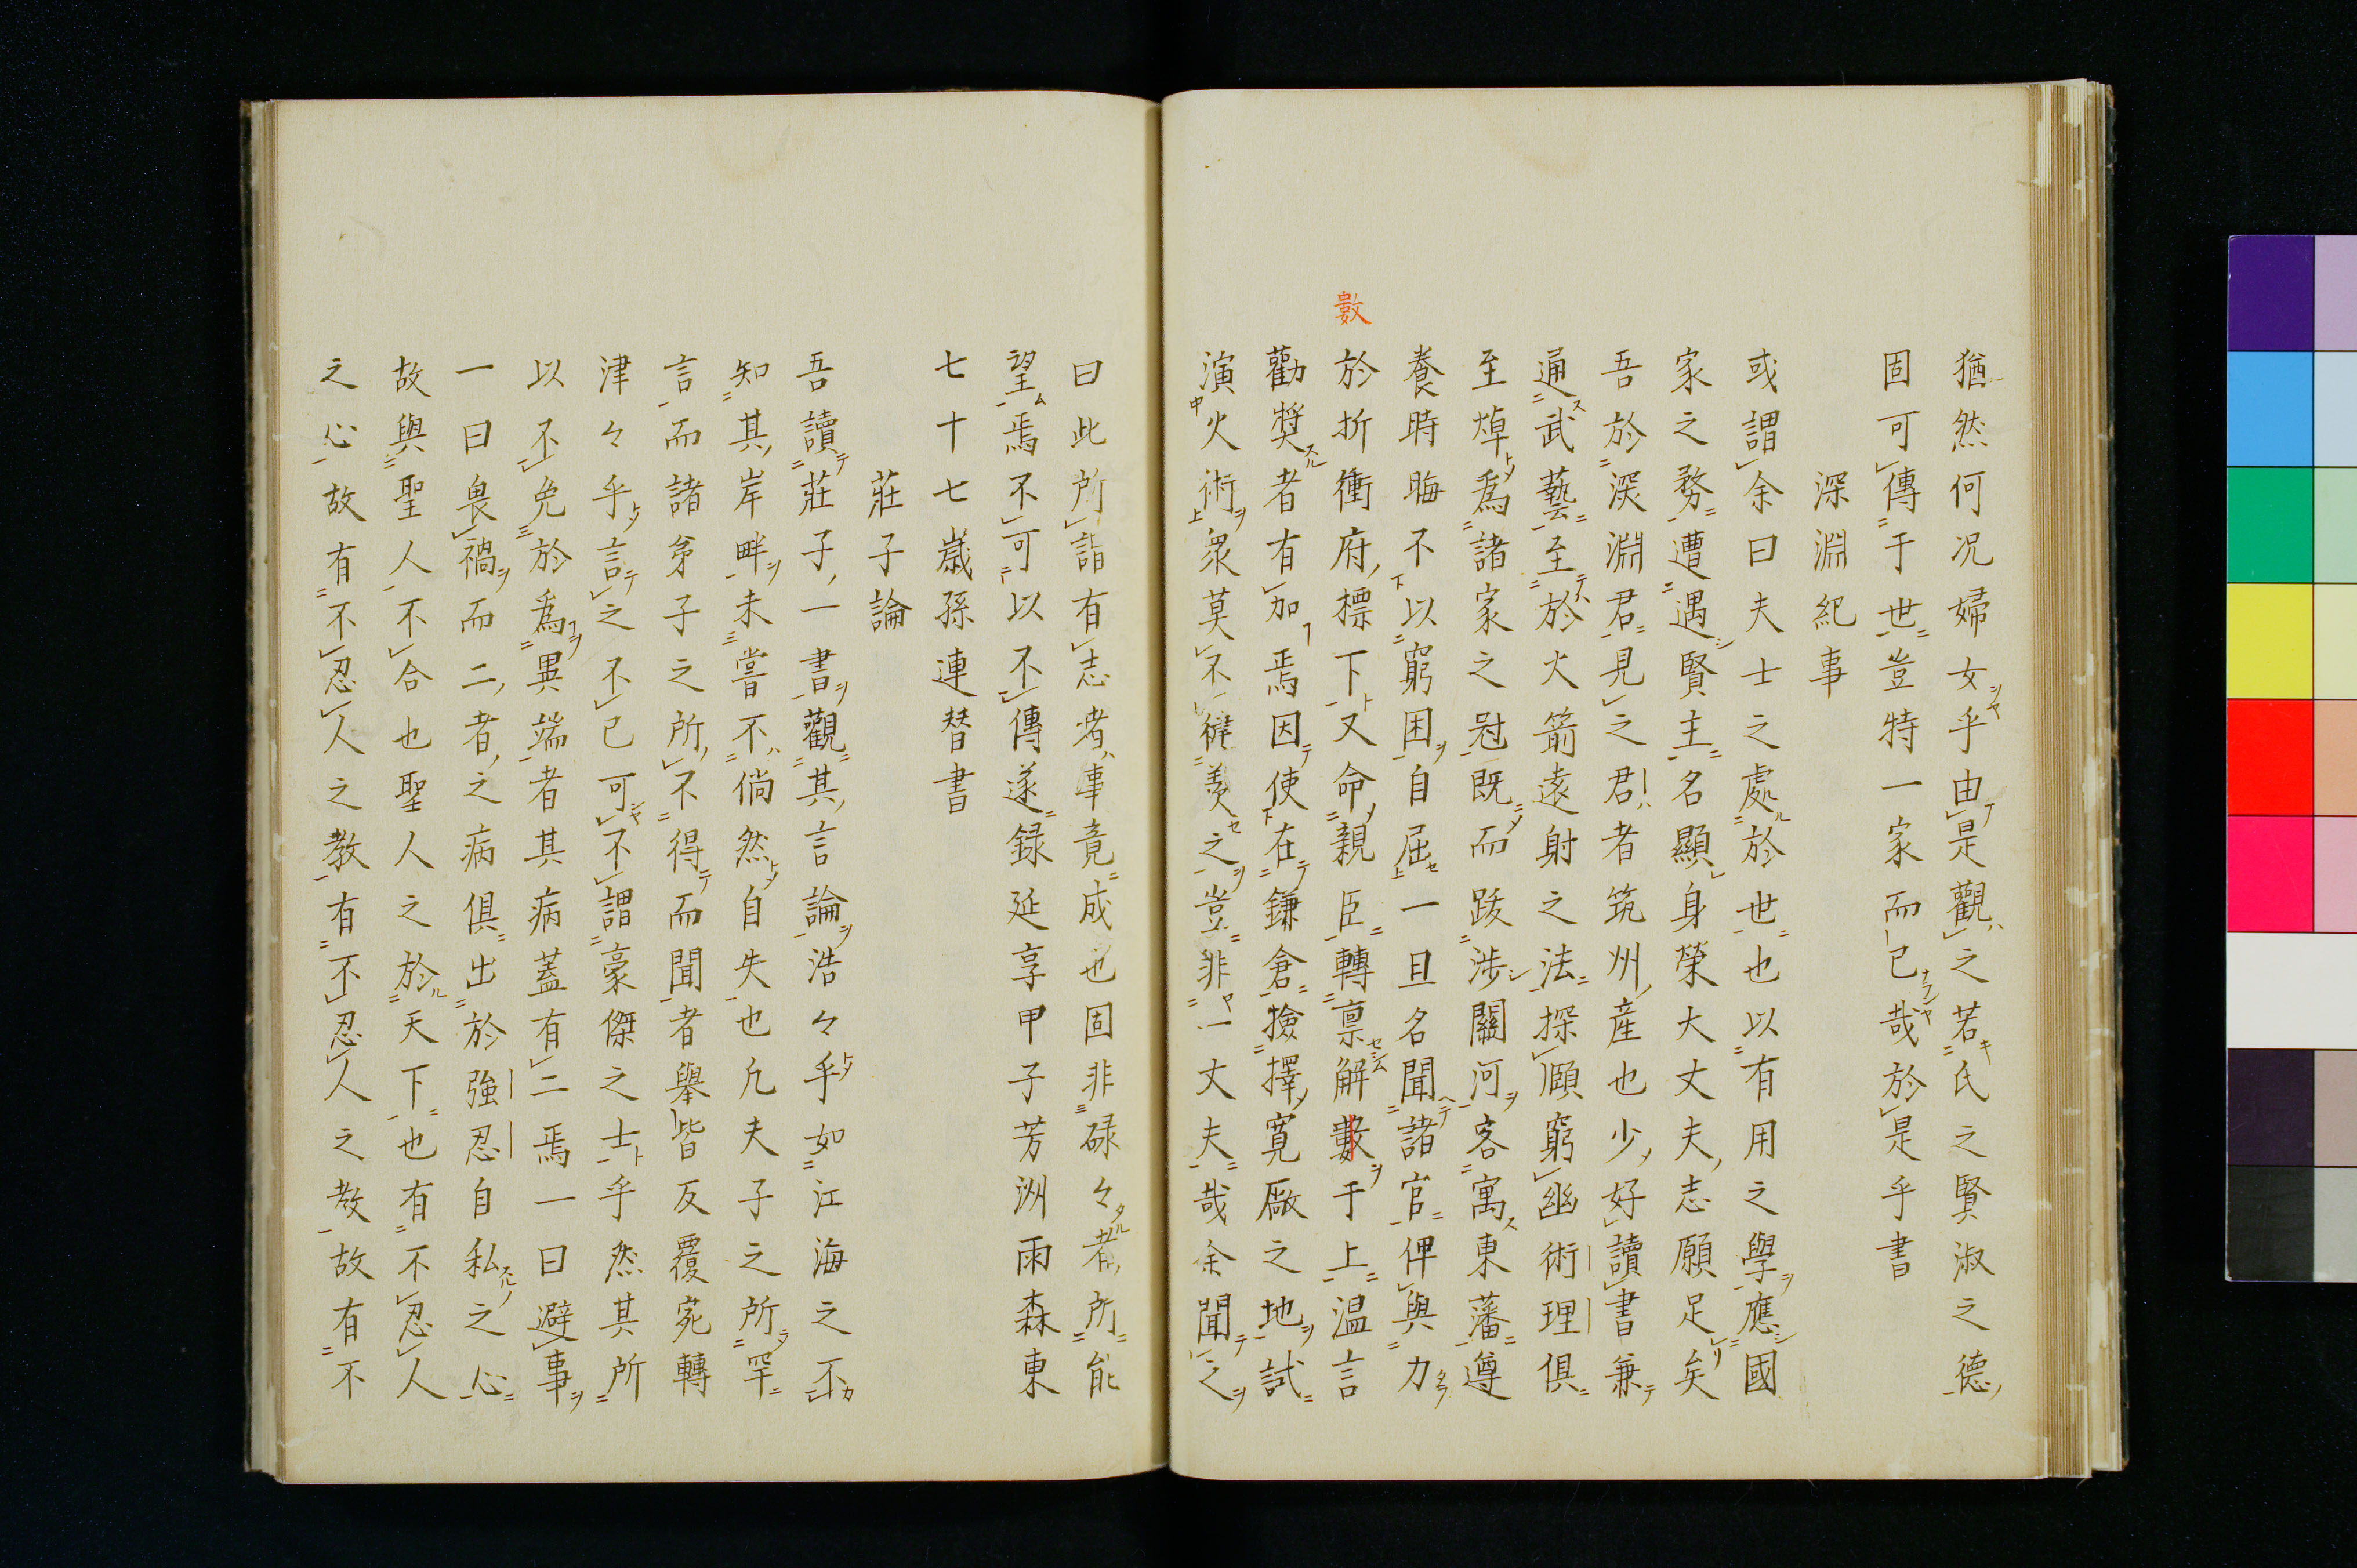 猶然何况婦女乎由是觀之若氏之賢淑之德
固可傳于世豈特一家而已哉於是乎書
深淵紀事
或謂余曰夫士之處於世也以有用之學應國
家之務遭遇賢主名顯身榮大丈夫志願足矣
吾於深淵君見之君者筑州產也少好讀書兼
通武藝至於火箭遠射之法探頤窮幽術理俱
至焯爲諸家之冠既而跋涉關河客寓東藩遵
養時晦不以窮困自屈一旦名聞諸官俾與力
數
於折衝府標下又命親臣轉禀解數于上温言
勸奬者有加焉因使在鎌倉撿擇寬厰之地試
演火術衆莫不徤羨之豈非一丈夫哉余聞之
曰此所謂有志者事竟成也固非碌々者所能
望焉不可以不傳遂録延享甲子芳洲雨森東
七十七嵗孫連替書
莊子論
吾讀莊子一書觀其言論浩々乎如江海之不
知其岸畔未嘗不倘然自失也凢夫子之所罕
言而諸弟子之所不得而聞者舉皆反覆宛轉
津々乎言之不已可不謂豪傑之士乎然其所
以不免於爲異端者其病蓋有二焉一曰避事
一曰畏禍而二者之病俱出於強忍自私之心
故與聖人不合也聖人之於天下也有不忍人
之心故有不忍人之教有不忍人之教故有不